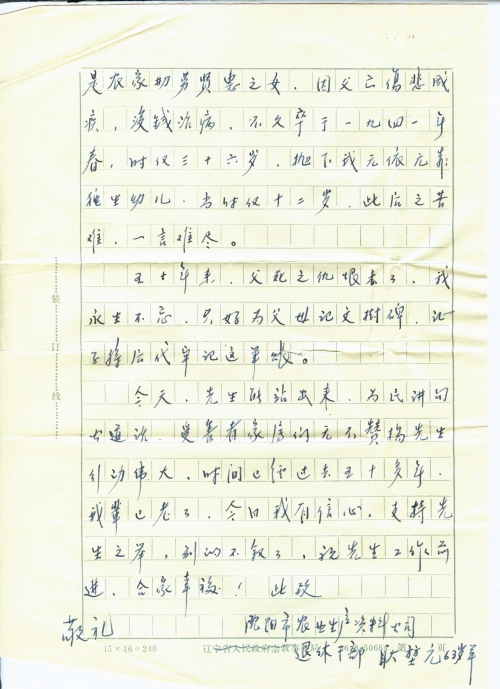 是农家的劳贤惠之女，因父亡伤悲成
疾，没钱治病，不久卒于一九四一年
春，时仅三十六岁，抛下我无依无靠
独生幼儿，当时仅十二岁，此后之苦
难，一言难尽。
五十年来，父死之仇恨春了，我
永生不忘，只好为父母记文树碑，让
子孙后代牢记这笔账。
今天，先生能站出来，为民讲句
公道话，受害者家属们无不赞扬先生
行动伟大，时间已经过去五十多年，
我辈已老了，今日我有信心，支持先
生之举，别的不叙了，祝先生工作前
进，合家幸福！ 此致
敬礼
沈阳市农业生产资料公司
退休干部 耿 元63岁
装订线
15×16=240 辽宁省人民政府宗教事 页